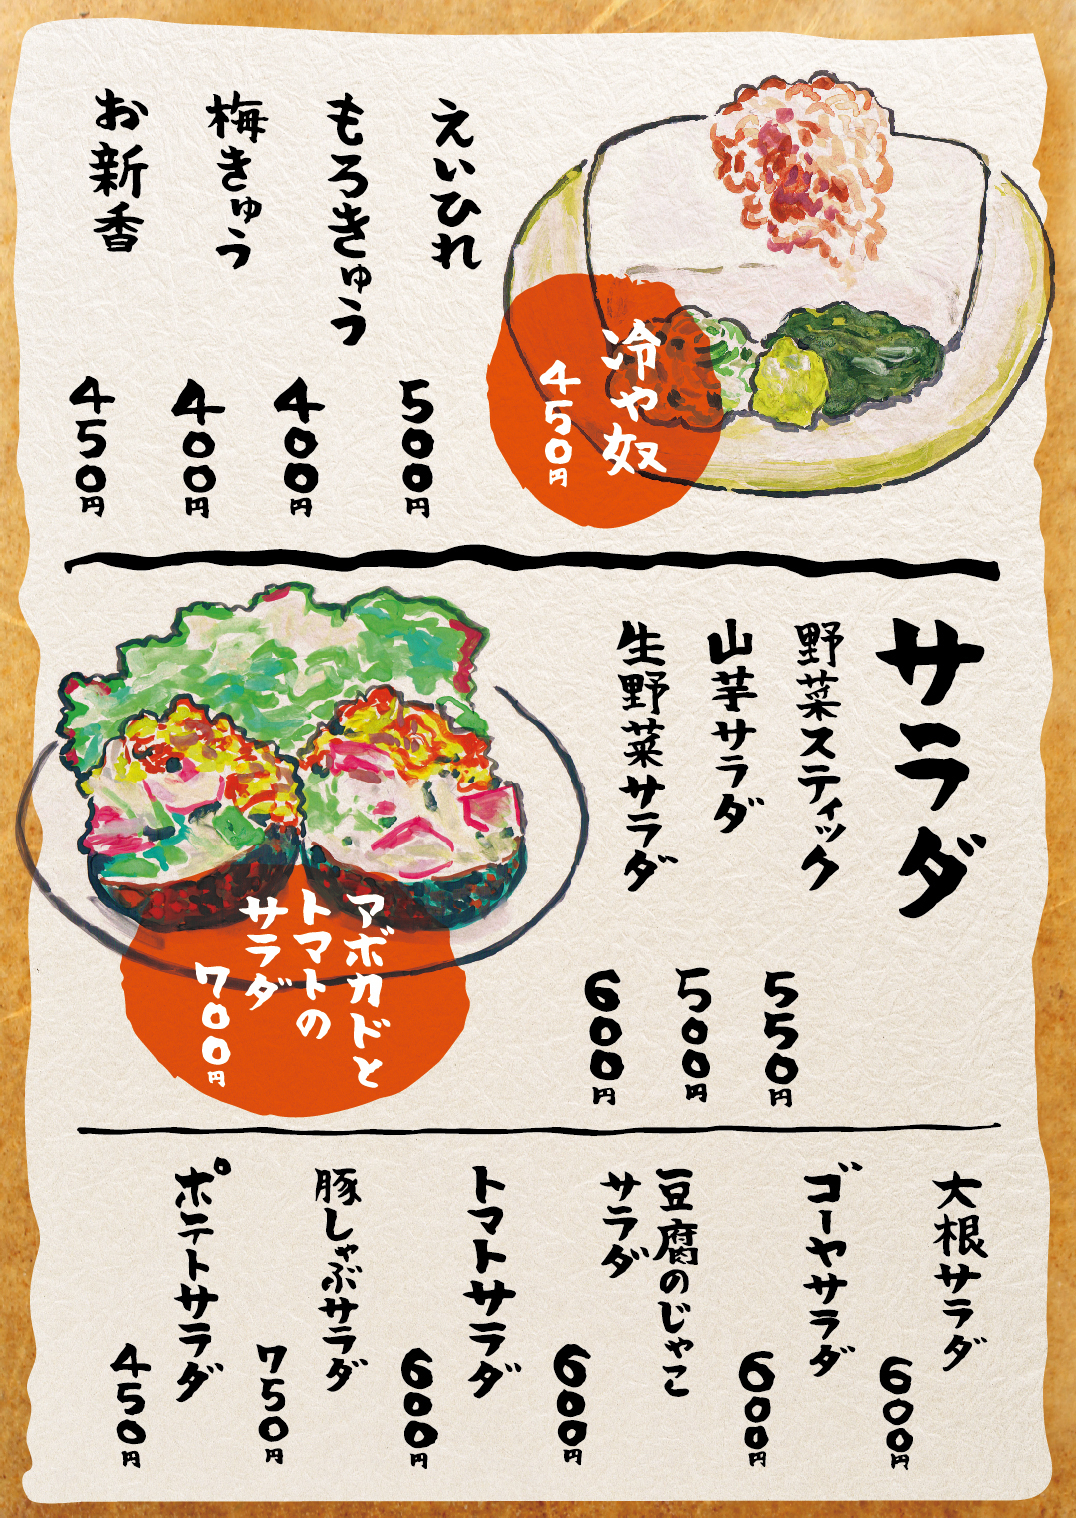 冷や奴
450円
えいひれ
500円
もろきゅう
400円
梅きゅう
400円
お新香
450円
サラダ
野菜スティック
550円
山芋サラダ
500円
生野菜サラダ
600円
アボカドと
トマトの
サラダ
700円
大根サラダ
600円
ゴーヤサラダ
600円
豆腐のじゃこ
サラダ
600円
トマトサラダ
600円
豚しゃぶサラダ
750円
ポテトサラダ
450円